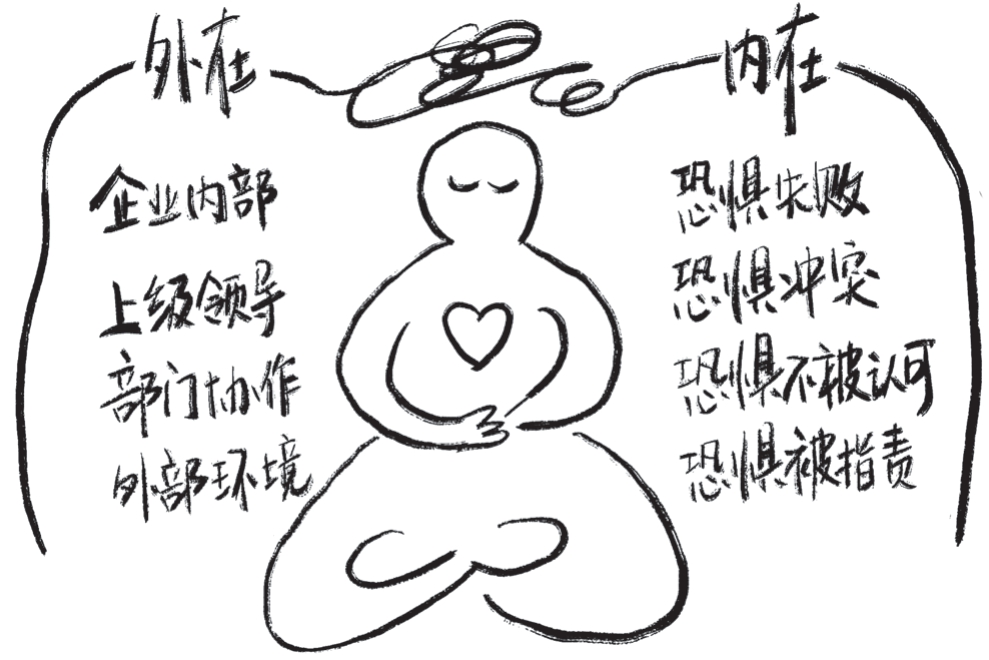 外在
企业内部
上级领导
部门协作
外部环境
内在
恐惧失败
恐惧冲突
恐惧不被认可
恐惧被指责